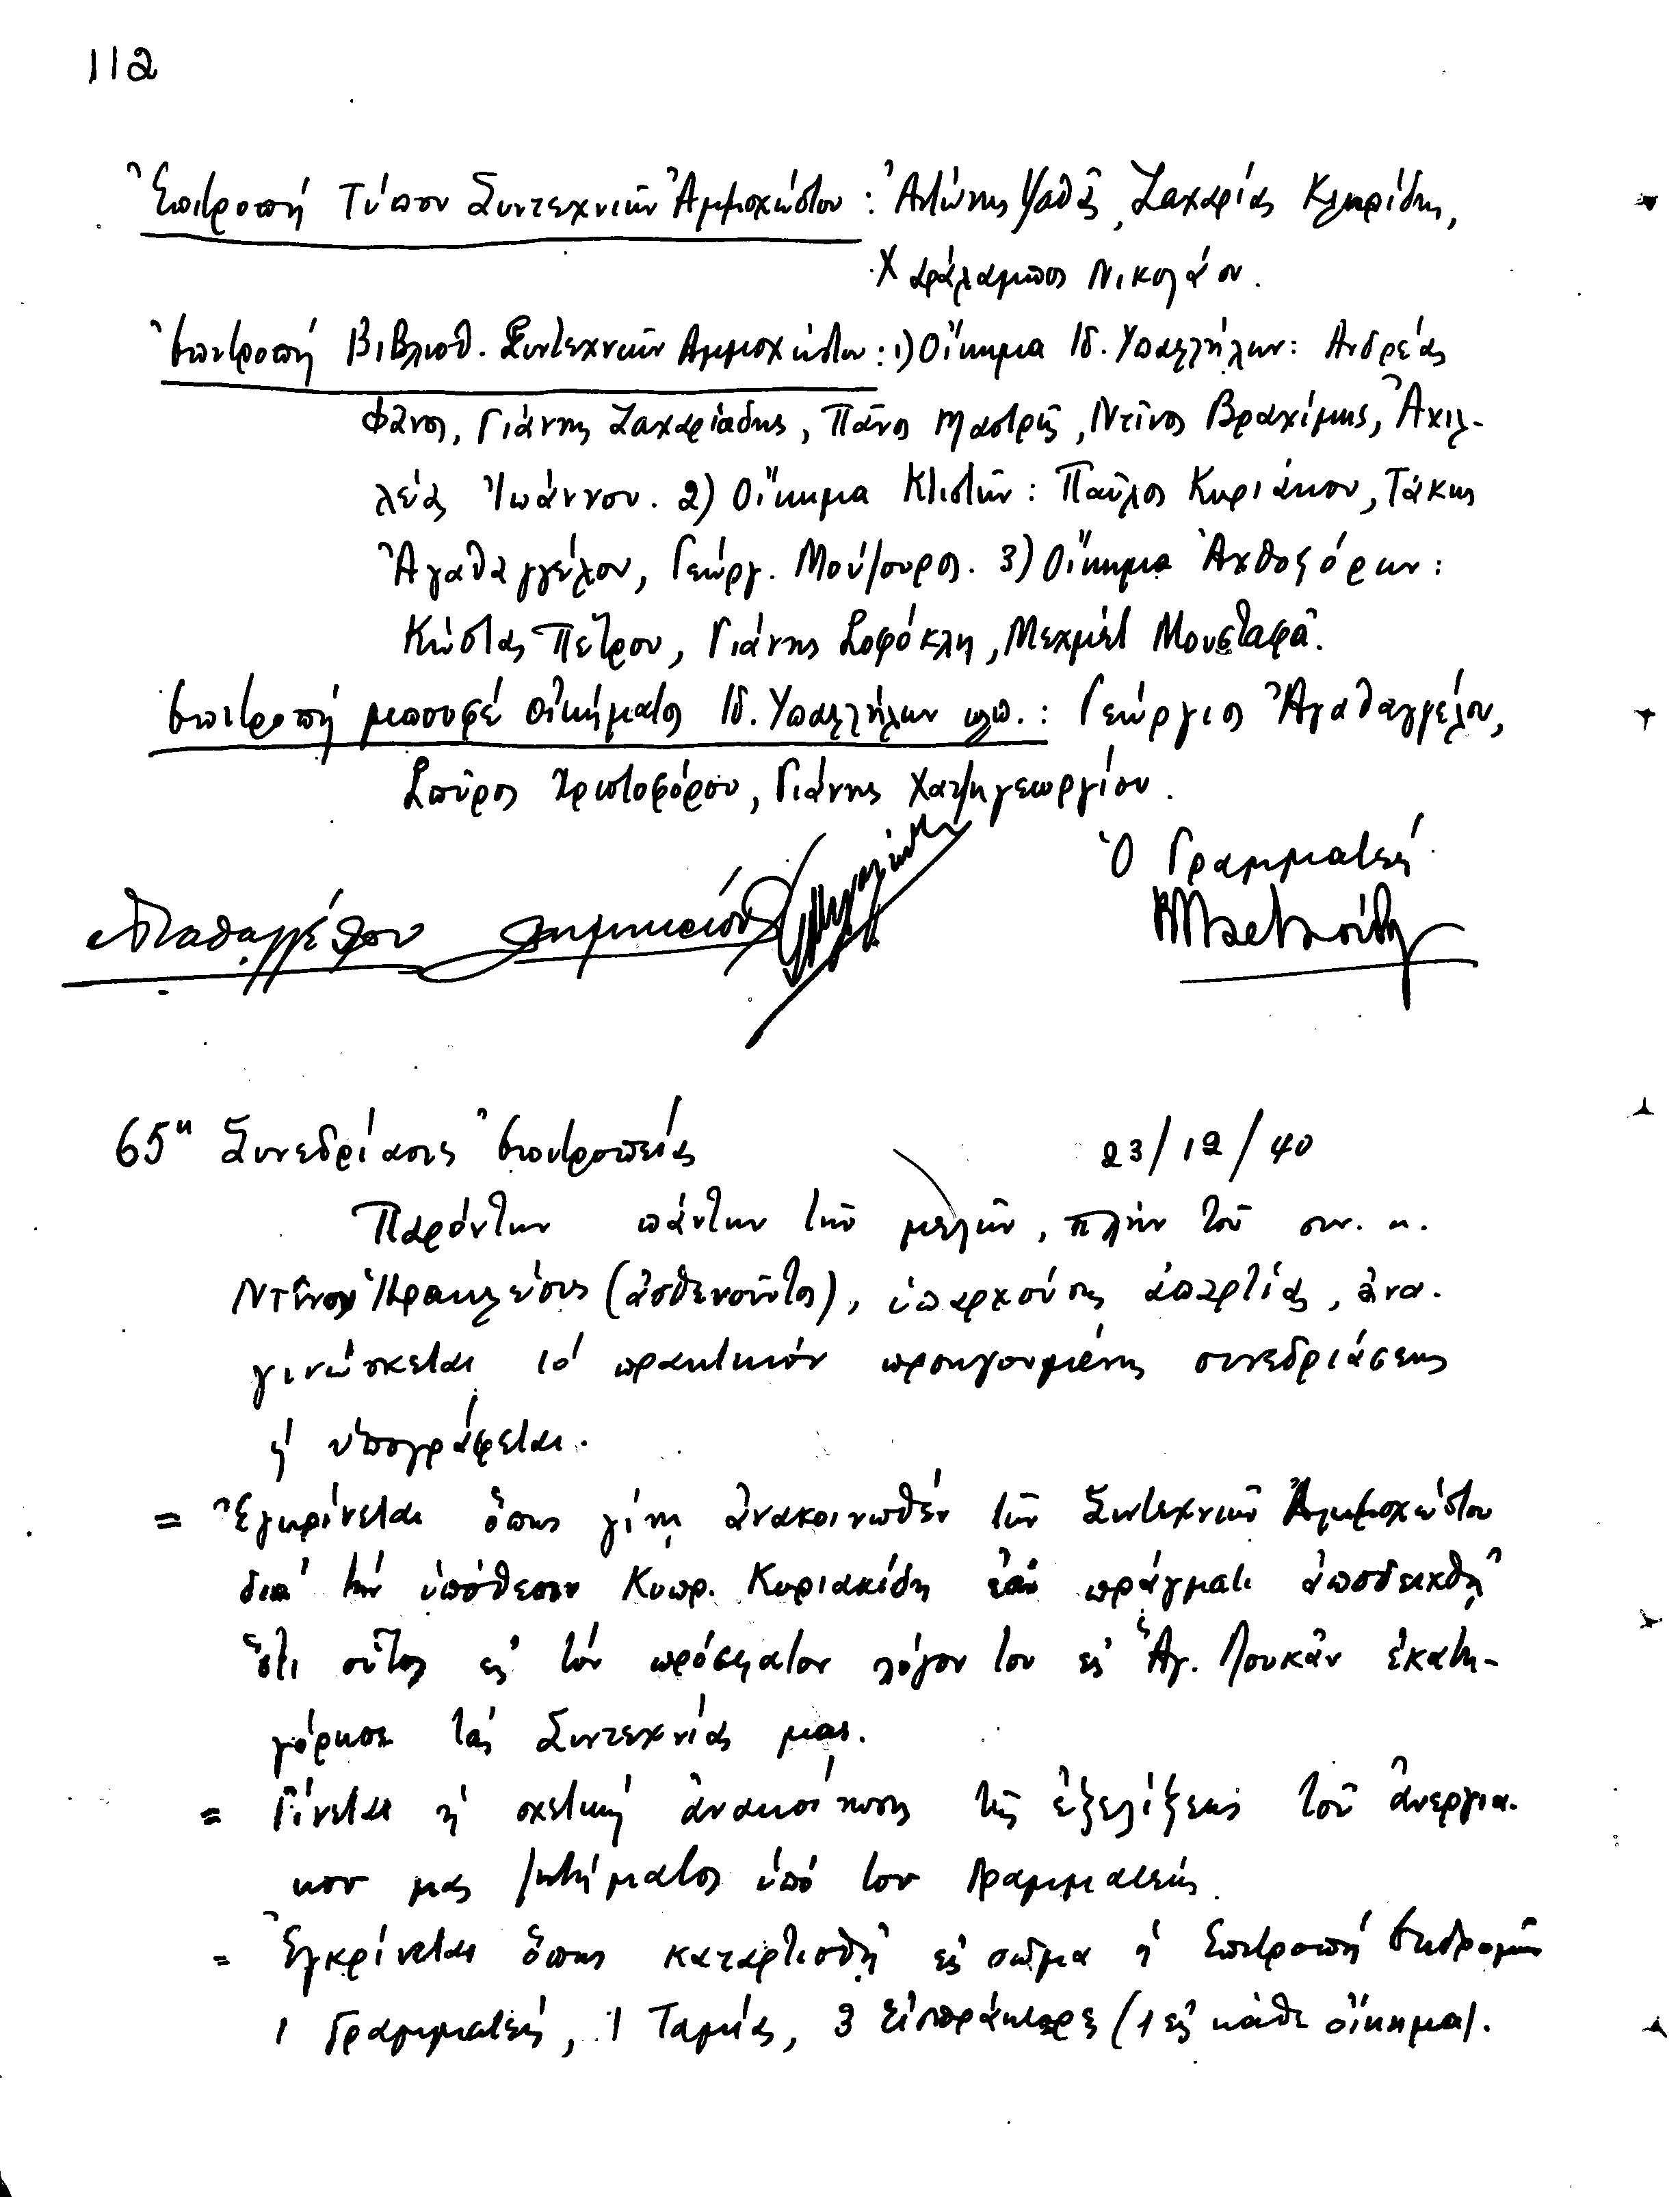 112
Ἐπιτροπή Τύπου Συντεχνιῶν Ἀμμοχώστου: Ἀντώνης Ψαθᾶς, Ζαχαρίας Κληρίδης,
Χαράλαμπος Νικολάου.
Ἐπιτροπή Βιβλιοθ. Συντεχνιῶν Αμμοχώστου: 1) Οἴκημα Ἰδ. Υπαλλήλων: Ανδρέας
Φάνος, Γιάννης Ζαχαριάδης, Πᾶνος Μαστρῆς, Ντῖνος Βραχίμης, Ἀχιλ-
λέας Ἰωάννου. 2) Οἴκημα Κτιστῶν: Παῦλος Κυριάκου, Τάκης
Ἀγαθαγγέλου, Γεώργ. Μούζουρος. 3) Οἴκημα Ἀχθοφόρων:
Κώστας Πέτρου, Γιάννης Σοφόκλη, Μεχμέτ Μουσταφᾶ.
Ἐπιτροπή μπουφέ οἰκήματος Ἰδ. Υπαλλήλων κλπ.: Γεώργιος Ἀγαθαγγέλου,
Σπῦρος Χριστοφόρου, Γιάννης Χατζηγεωργίου.
Ὁ Γραμματεύς
Αγαθαγγέλου Δημητρίου
65η Συνεδρίασις Ἐπιτροπείας 23/12/40
Παρόντων πάντων τῶν μελῶν, πλήν τοῦ συν. κ.
Ντίνου Ἡρακλέους (ἀσθενοῦντος), ὑπαρχούσης ἀπαρτίας, ἀνα-
γινώσκεται τό πρακτικόν προηγουμένης συνεδριάσεως
ϗ ὑπογράφεται.
= Ἐγκρίνεται ὅπως γίνῃ ἀνακοινωθέν τῶν Συντεχνιῶν Ἀμμοχώστου
διά τήν ὑπόθεσιν Κυπρ. Κυριακίδη ἐάν πράγματι ἀποδειχθῇ
ὅτι οὗτος εἰς τόν πρόσφατον λόγον του εἰς Ἁγ. Λουκᾶν ἐκατη-
γόρησε τάς Συντεχνίας μας.
= Γίνεται ἡ σχετική ἀνακοίνωσις τῆς ἐξελίξεως τοῦ ἀνεργια-
κου μας ζητήματος ὑπό του Γραμματέως.
= Ἐγκρίνεται ὅπως καταρτισθῇ εἰς σῶμα ἡ Ἐπιτροπή Ἐκδρομῶν
1 Γραμματεύς, 1 Ταμίας, 3 Εἰσπράκτορες (1 εἰς κάθε οἴκημα).